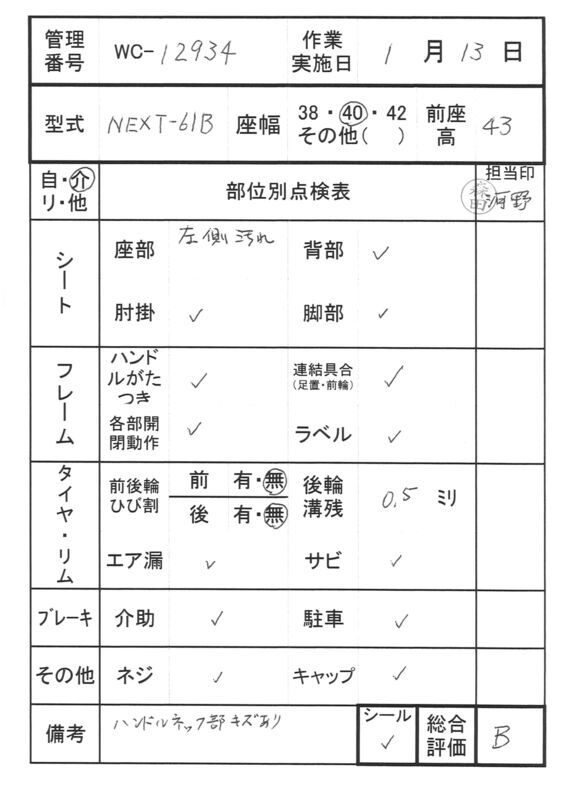 管理番号 WC-12934 作業実施日 1月13日
型式 NEXT-61B 座幅 38・40・42 その他( ) 前座高 43
自・介 リ・他 部位別点検表 担当印
森田 河野
シート 座部 左側汚れ 背部 ✓
肘掛 ✓ 脚部 ✓
フレーム ハンドルがたつき ✓ 連結具合(足置・前輪) ✓
各部開閉動作 ✓ ラベル ✓
タイヤ・リム 前後輪ひび割 前 有・無 後輪溝残 0.5 ミリ
後 有・無
エア漏 ✓ サビ ✓
ブレーキ 介助 ✓ 駐車 ✓
その他 ネジ ✓ キャップ ✓
備考 ハンドルネック部キズあり シール ✓ 総合評価 B